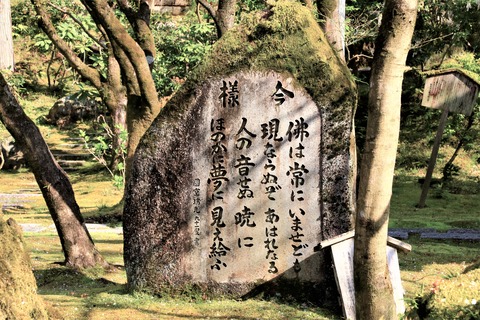 今様
佛は常にいませども
現ならぬぞあはれなる
人の音せぬ暁に
ほのかに夢に見え給ふ